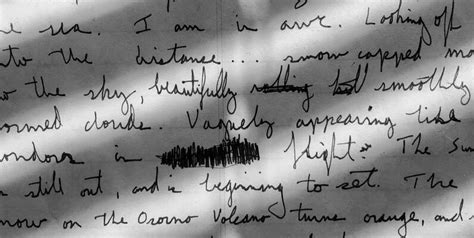 sea. I am in awe. Looking off
into the distance... snow capped
the sky, beautifully smoothly
formed clouds. Vaguely appearing like
condors in flight. The Sun
still out, and is beginning to set. The
snow on the Osorno Volcano turns orange, and